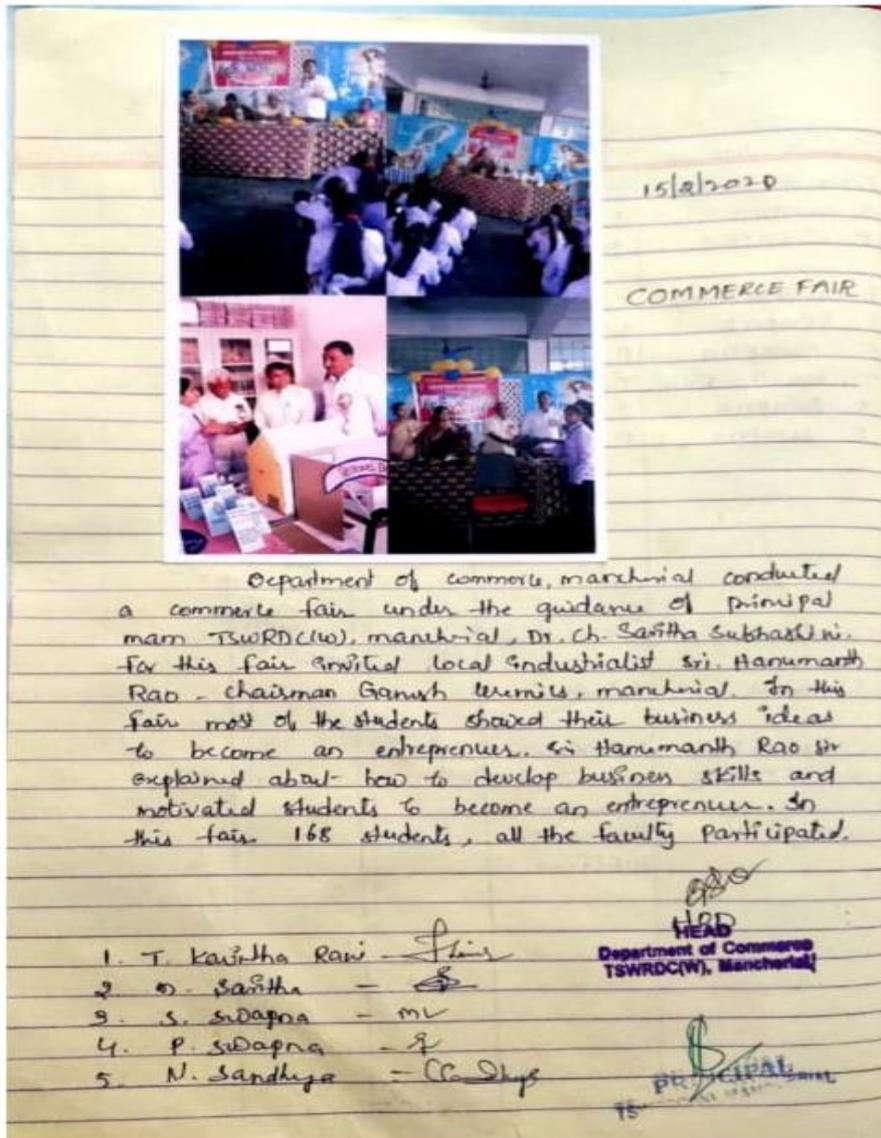 15/2/2020
COMMERCE FAIR
Department of commerce, mancherial conducted
a commerce fair under the guidance of principal
mam TSWRDC(W), mancherial, Dr. Ch. Saritha Subhashini.
For this fair invited local industrialist Sri. Hanumanth
Rao - Chairman Ganesh ceremics, mancherial. In this
fair most of the students showed their business ideas
to become an entreprenuer. Sri Hanumanth Rao sir
explained about how to develop business skills and
motivated students to become an entreprenuer. In
this fair 168 students, all the faculty participated.
HOD
HEAD
Department of Commerce
TSWRDC(W), Mancherial
1. T. Kavitha Rani -
2. Saritha -
3. S. Swapna -
4. P. Swapna -
5. N. Sandhya -
PRINCIPAL